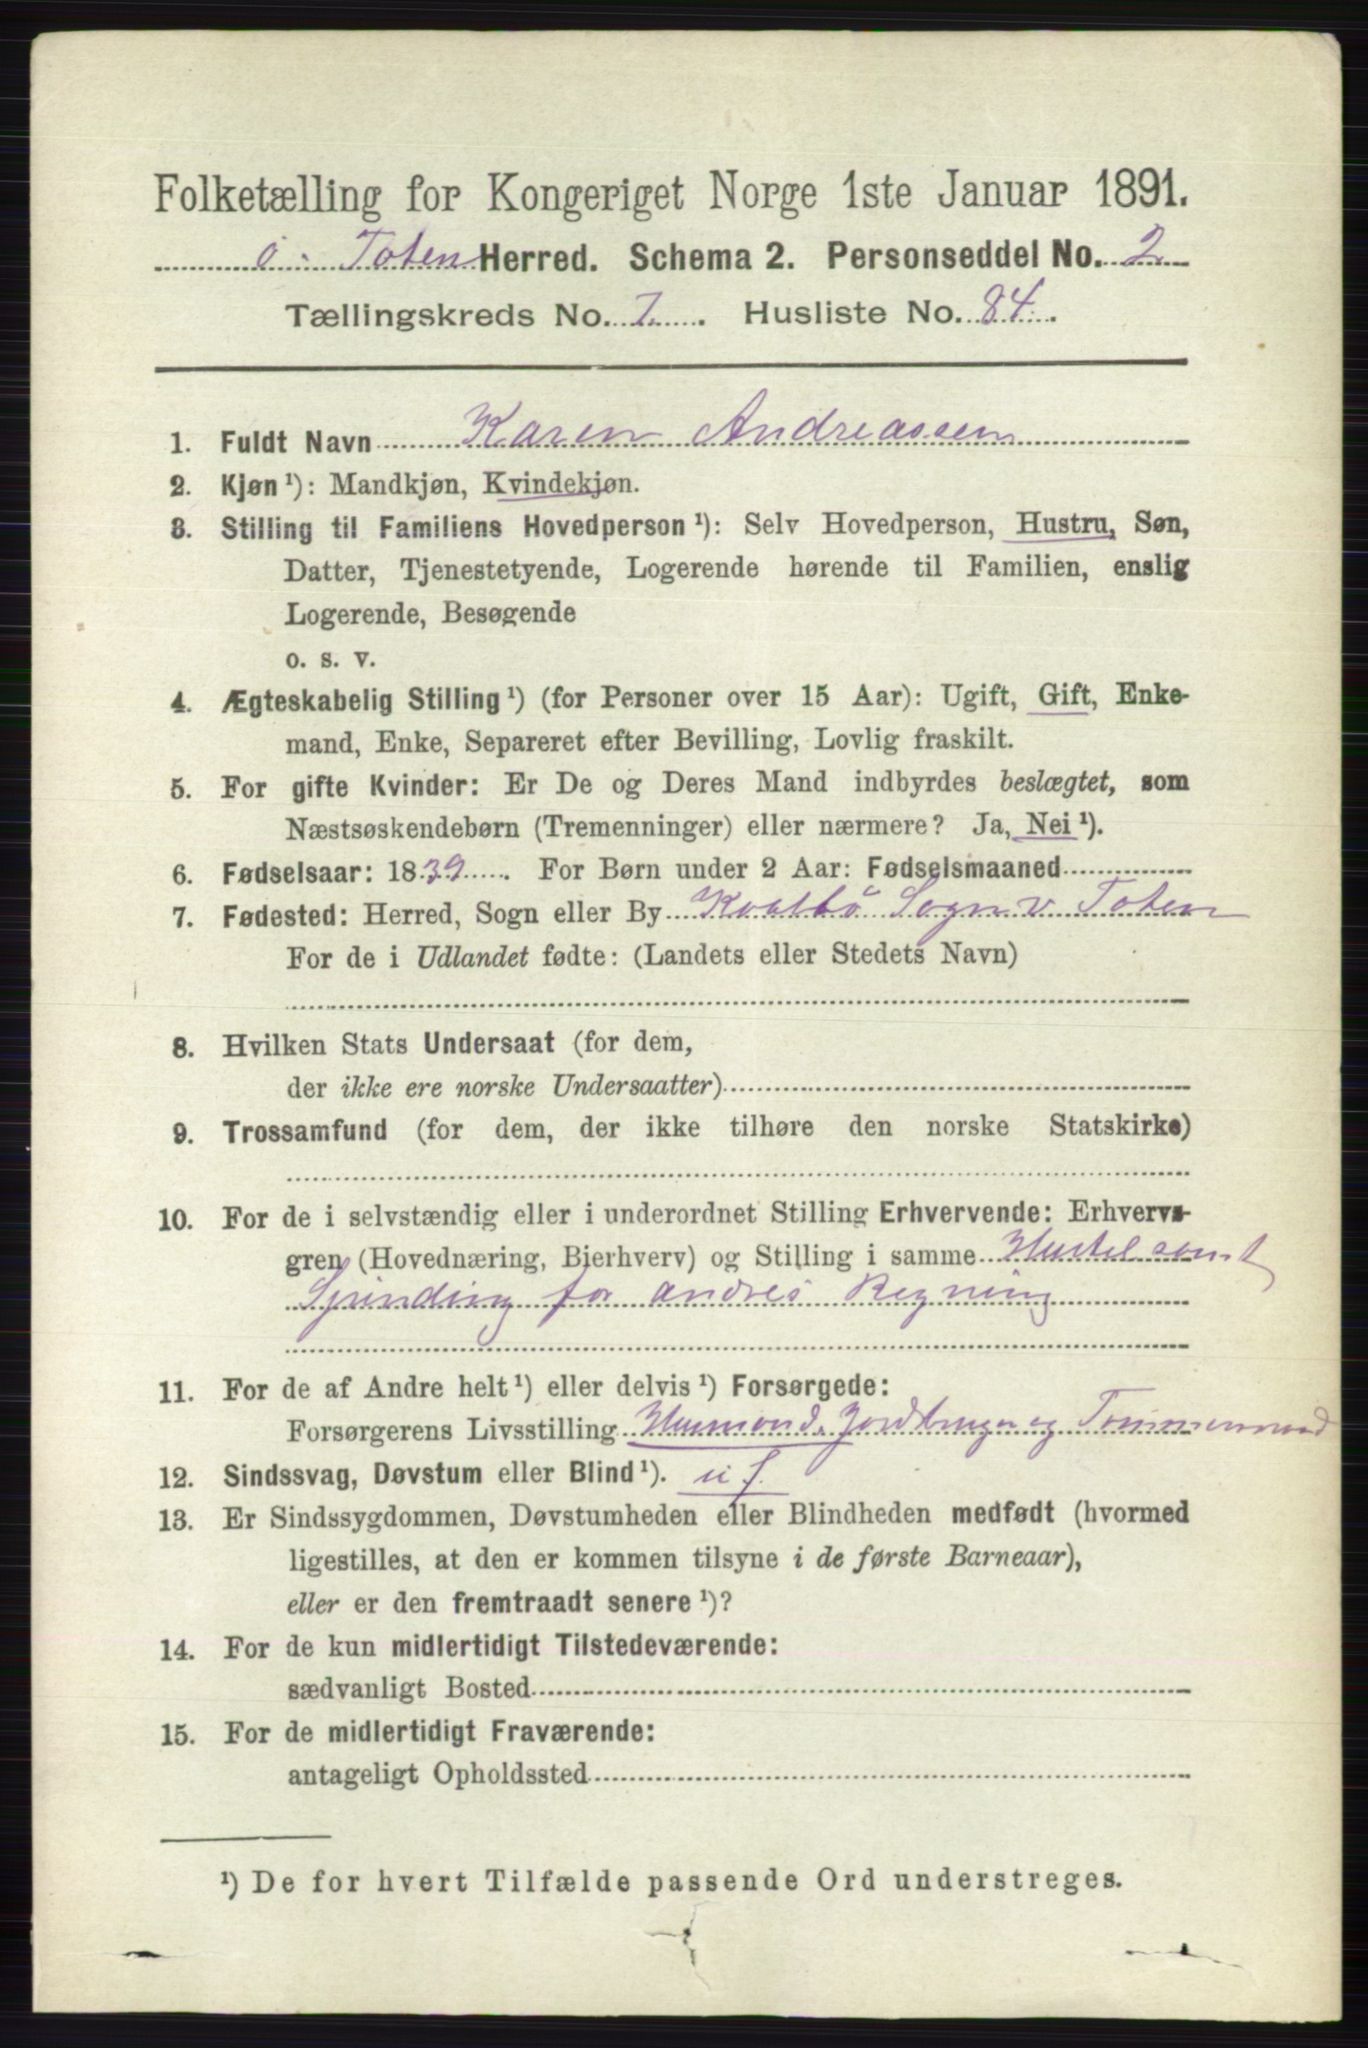 Folketælling for Kongeriget Norge 1ste Januar 1891.
Ö. Toten Herred. Schema 2. Personseddel No. 2
Tællingskreds No. 7. Husliste No. 84.
1. Fuldt Navn Karen Andreassen
2. Kjøn ¹): Mandkjøn, Kvindekjøn.
3. Stilling til Familiens Hovedperson ¹): Selv Hovedperson, Hustru, Søn,
Datter, Tjenestetyende, Logerende hørende til Familien, enslig
Logerende, Besøgende
o. s. v.
4. Ægteskabelig Stilling ¹) (for Personer over 15 Aar): Ugift, Gift, Enke-
mand, Enke, Separeret efter Bevilling, Lovlig fraskilt.
5. For gifte Kvinder: Er De og Deres Mand indbyrdes beslægtet, som
Næstsøskendebørn (Tremenninger) eller nærmere? Ja, Nei ¹).
6. Fødselsaar: 1839. For Børn under 2 Aar: Fødselsmaaned
7. Fødested: Herred, Sogn eller By Kolbö Sogn v Toten
For de i Udlandet fødte: (Landets eller Stedets Navn)
8. Hvilken Stats Undersaat (for dem,
der ikke ere norske Undersaatter)
9. Trossamfund (for dem, der ikke tilhøre den norske Statskirke)
10. For de i selvstændig eller i underordnet Stilling Erhvervende: Erhvervs-
gren (Hovednæring, Bierhverv) og Stilling i samme Husstel samt
Spinding for andres Regning
11. For de af Andre helt ¹) eller delvis ¹) Forsørgede:
Forsørgerens Livsstilling Husmand, Jordbruger og Tømmermand
12. Sindssvag, Døvstum eller Blind ¹).
13. Er Sindssygdommen, Døvstumheden eller Blindheden medfødt (hvormed
ligestilles, at den er kommen tilsyne i de første Barneaar),
eller er den fremtraadt senere ¹)?
14. For de kun midlertidigt Tilstedeværende:
sædvanligt Bosted
15. For de midlertidigt Fraværende:
antageligt Opholdssted
¹) De for hvert Tilfælde passende Ord understreges.